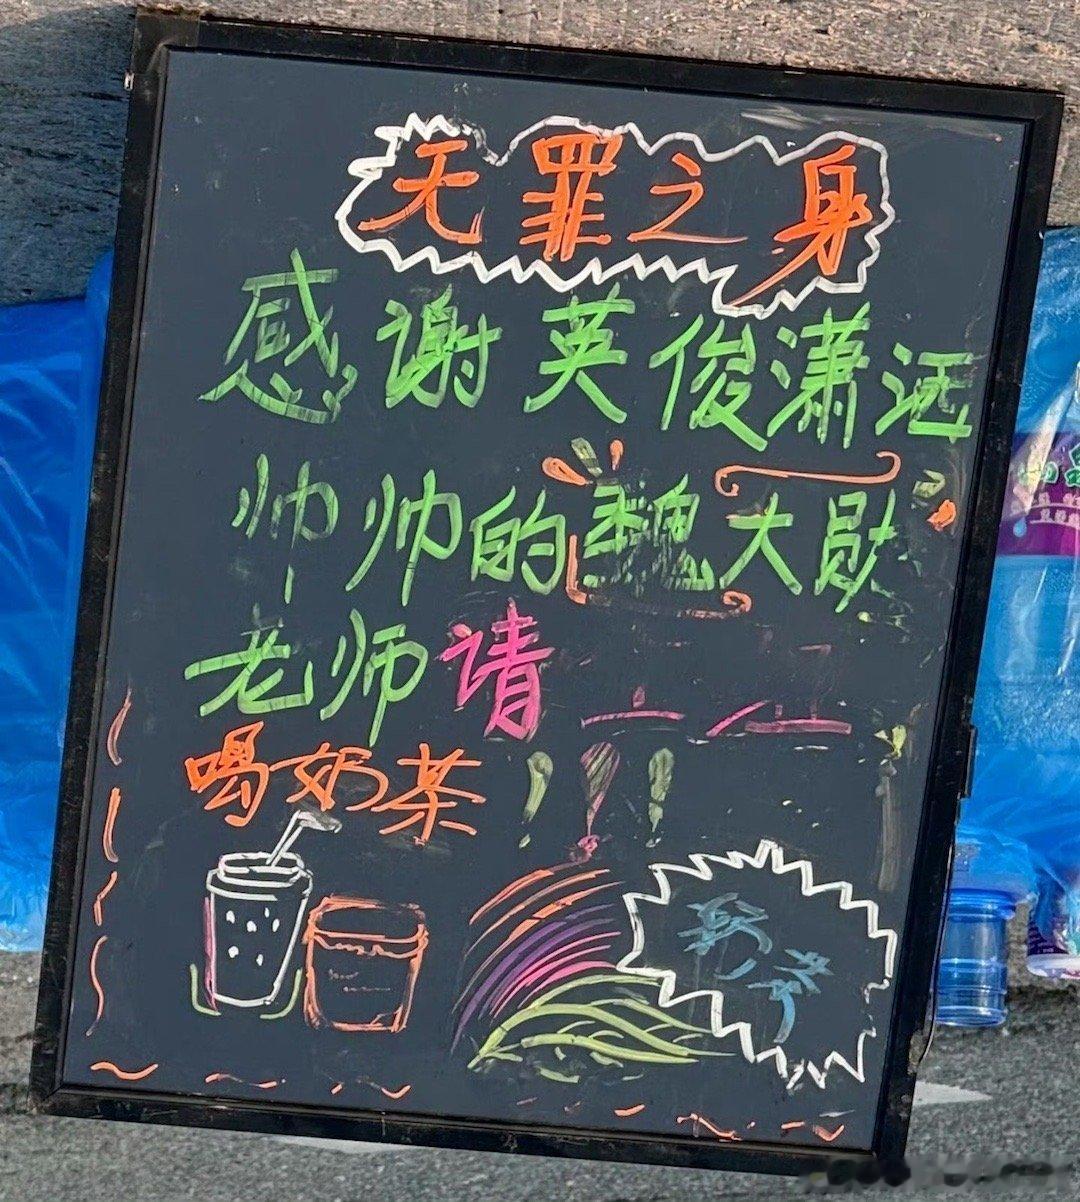 无罪之身
感谢英俊潇洒
帅帅的魏大勋
老师请
喝奶茶!!!
奶茶